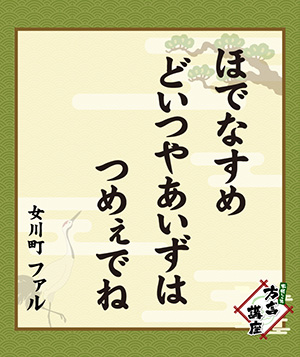 ほでなすめ
どいつやあいずは
つめぇでね
女川町 ファル
方言
講座